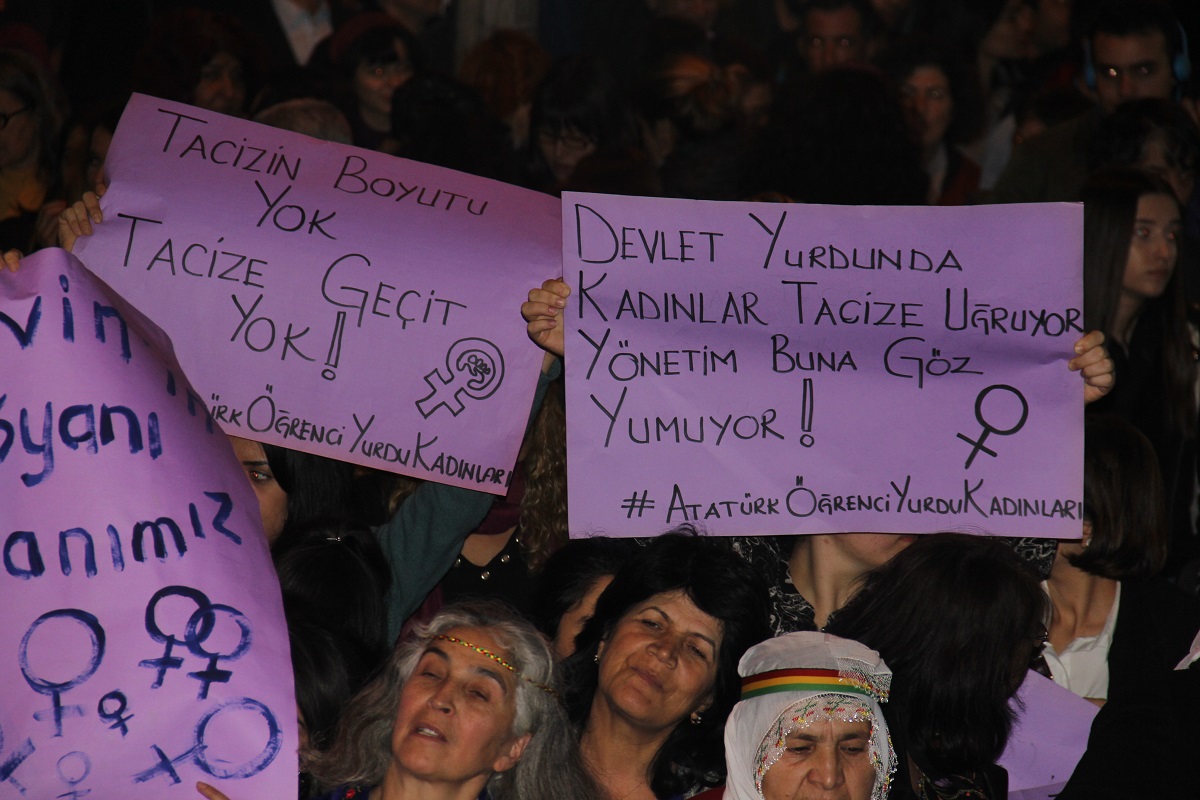 TACİZİN BOYUTU
YOK
TACİZE GEÇİT
YOK!
ÖĞRENCİ YURDU KADINLARI
DEVLET YURDUNDA
KADINLAR TACİZE UĞRUYOR
YÖNETİM BUNA GÖZ
YUMUYOR!
#ATATÜRKÖĞRENCİYURDUKADINLARI